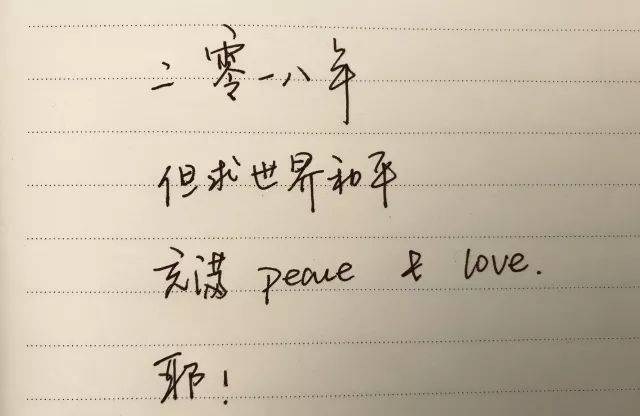 二零一八年
但求世界和平
充满 peace & love.
耶！